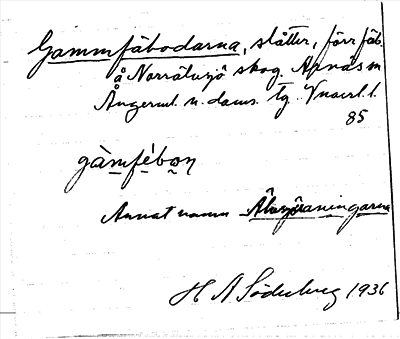 Gammfäbodarna, slåtter, förr fäb.
å Norrälvsjö skog. Arnäs sn
Ångerml. n. doms. tg.
85
gàmfébon
Annat namn Älvsjöraningarna
H A Söderberg 1936